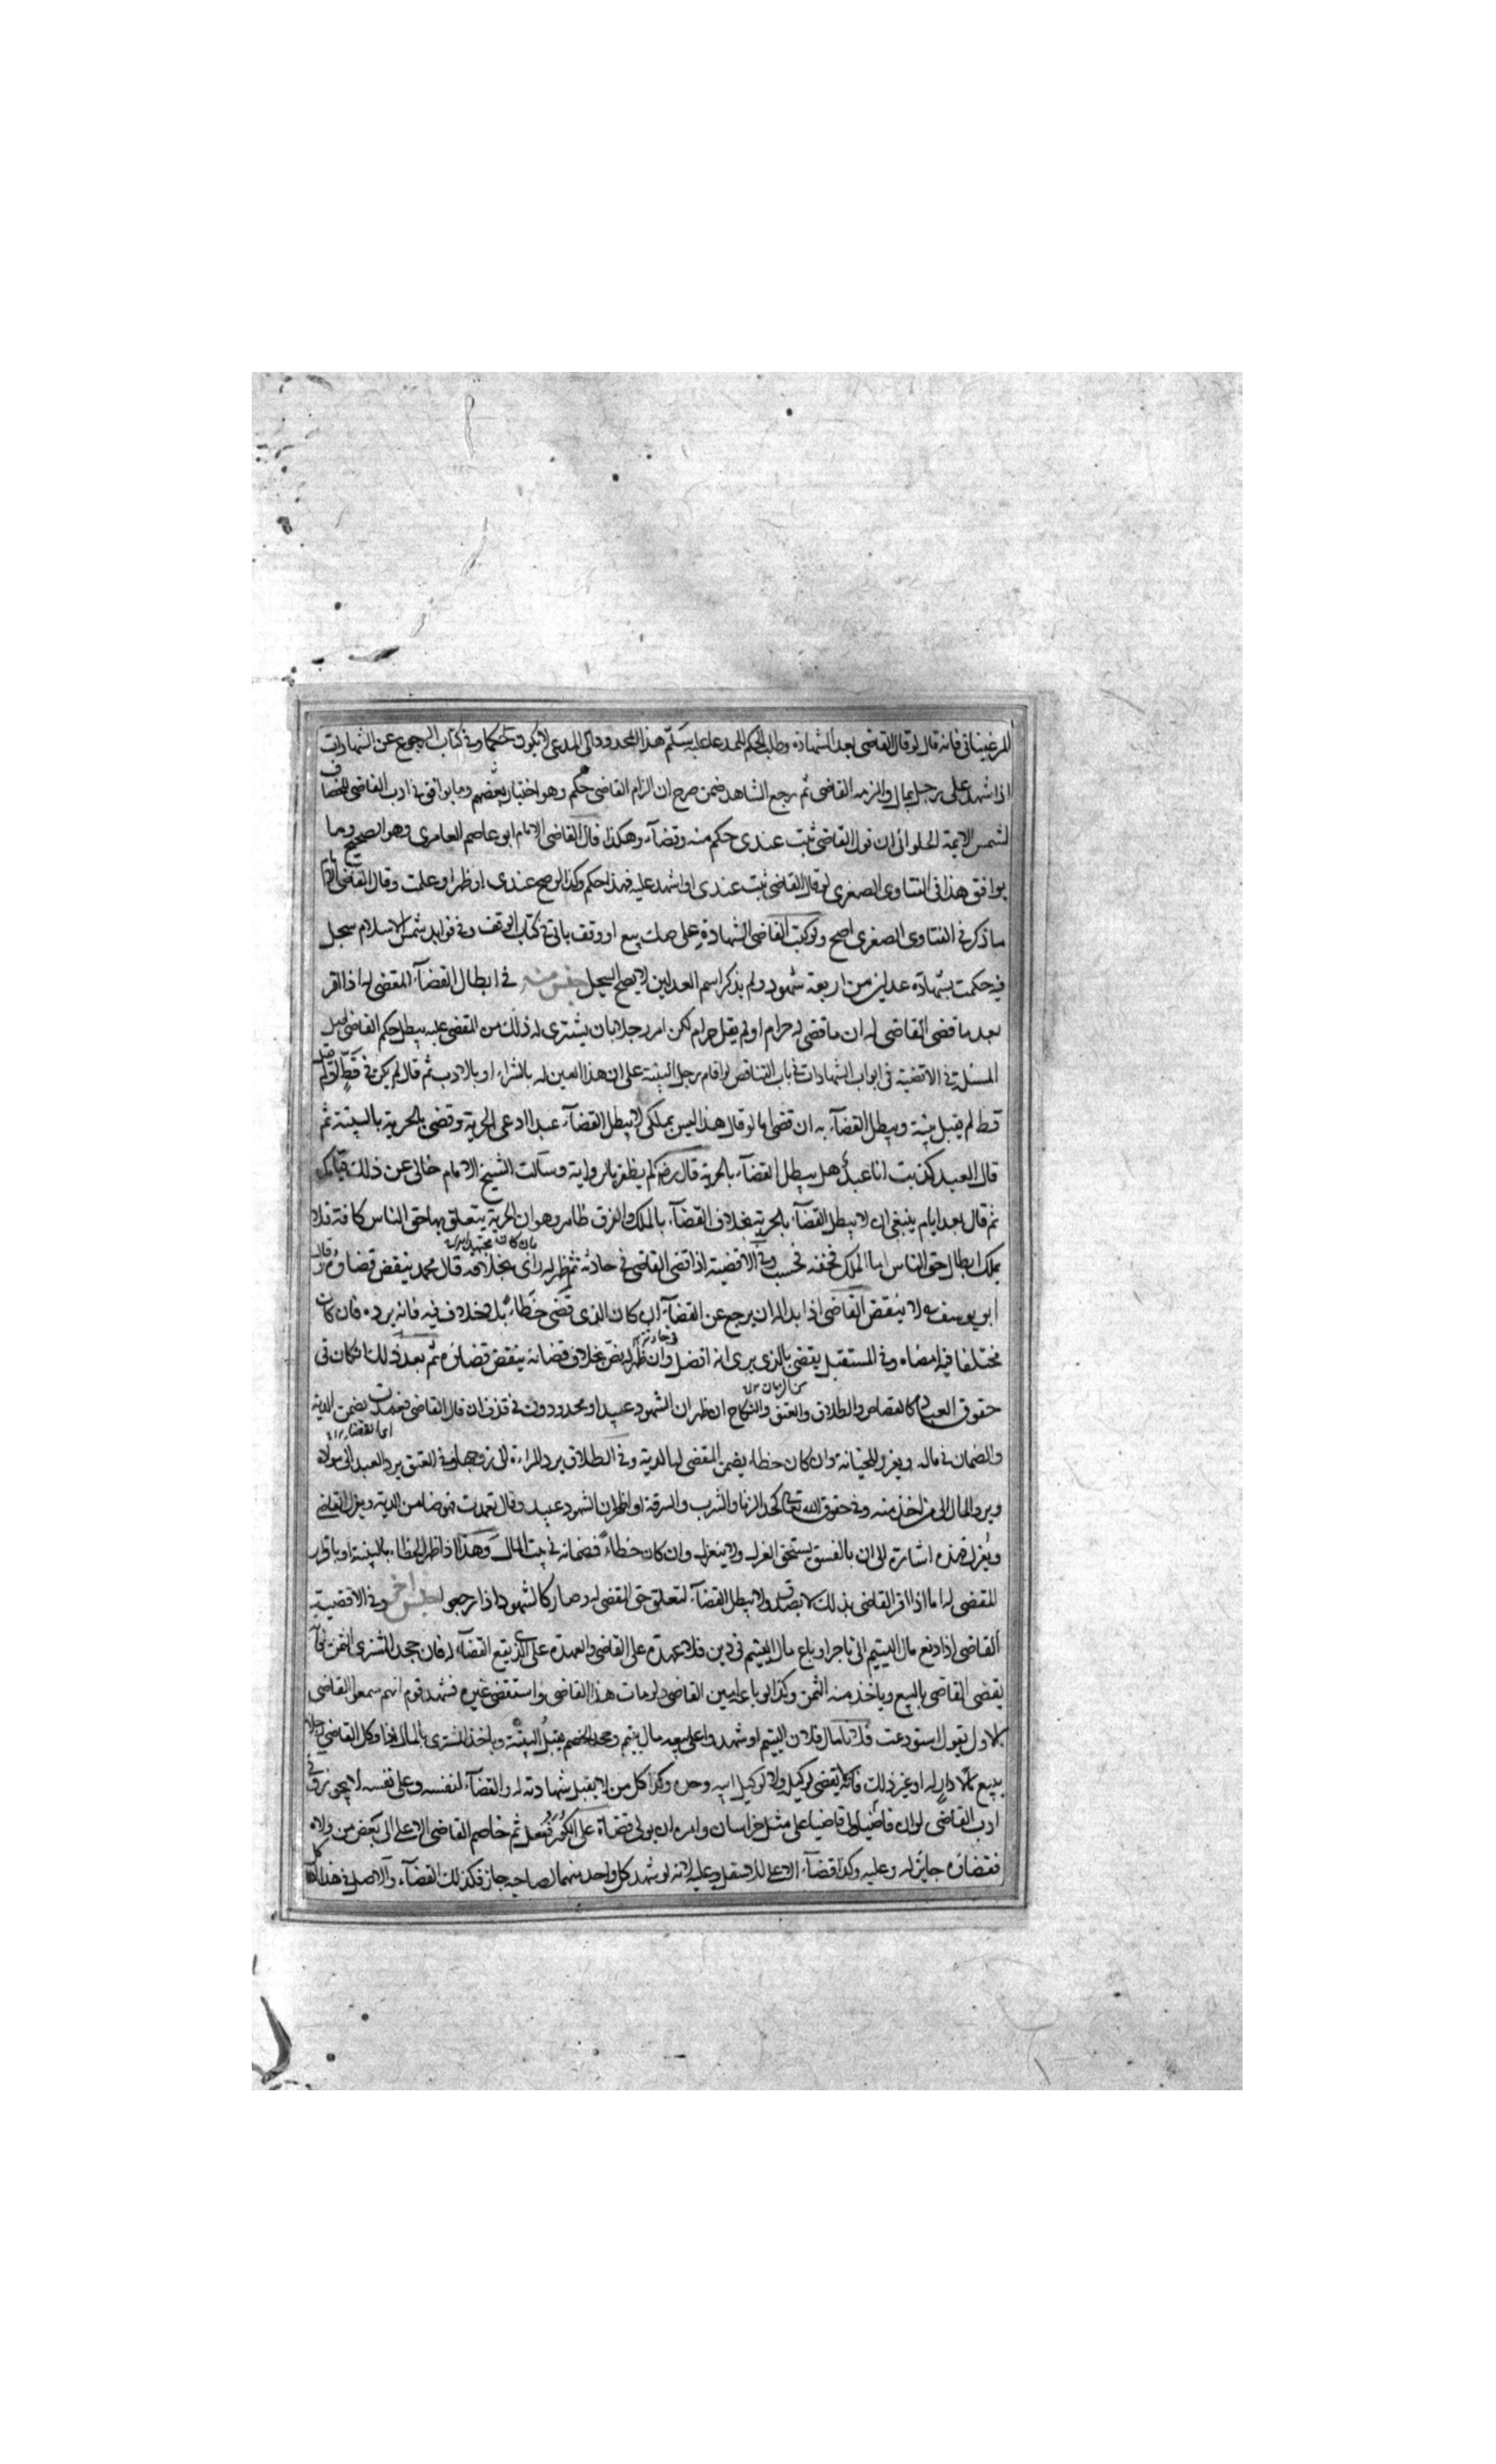 المرغيناني فانه قال لو قال القاضي بعد الشهادة وطلب الحكم للمدعا عليه سلّم هذا المحدود الى المدعى لا يكون حكما وفي كتاب الرجوع عن الشهادات
اذا شهد على رجل بمال والزمه القاضي ثم رجع الشاهد ضمن صرح ان الزام القاضي حكم وهو اختيار بعضهم وما يوافق في ادب القاضي للخصاف
لشمس الايمة الحلوائى ان قول القاضي ثبت عندى حكم منه وقضآء وهكذا قال القاضي الامام ابو عاصم العامرى وهو الصحيح وما
يوافق هذا في الفتاوى الصغرى لو قال القاضي ثبت عندى او اشهد عليه فهذا حكم وكذا لو صح عندى او ظهر او علمت وقال القاضي الامام
ما ذكر في الفتاوى الصغرى اصح ولو كتب القاضي الشهادة على صك بيع او وقف ياتي في كتاب الوقف وفي فوايد شمس الاسلام سجل
فيه حكمت بشهادة عدلين من اربعة شهود ولم يذكر اسم العدلين لا يصح السجل جنس منه في ابطال القضآء المقضى له اذا اقر
بعد ما قضى القاضي له ان ما قضى له حرام او لم يقل حرام لكن امر رجلا بان يشترى له ذلك من المقضى عليه يبطل حكم القاضي
المسئلة في الاقضية في ابواب الشهادات في باب التناقض لو اقام رجل البينة على ان هذا العين له بالشراء او بالارث ثم قال لم يكن لي قط
قط لم يقبل بينة ويبطل القضآء به ان قضى اما لو قال هذا ليس بملكى لا يبطل القضآء عبد ادعى الحرية وقضى بالحرية بالبينة ثم
قال العبد كذبت انا عبد هل يبطل القضآء بالحرية قال رضه لم يظفر بالرواية وسالت الشيخ الامام خالى عن ذلك
ثم قال بعد ايام ينبغي ان لا يبطل القضآء بالحرية بخلاف القضآء بالملك والفرق ظاهر وهو ان الحرية يتعلق بها حق الناس كافة فلا
يملك ابطال حق الناس اما الملك فحقه فحسب وفي الاقضية اذا قضى القاضي في حادثة ثم ظهر له راى بخلافه قال محمد ينقض قضاؤه وقال
ابو يوسف لا ينقض القاضي اذا بدا له ان يرجع عن القضآء ان كان الذى قضى خطاء بلا خلاف فيه فانه يرده فان كان
مختلفا فيه امضاه وفي المستقبل يقضي بالذى يرى انه افضل وان ظهر له نص بخلاف قضائه ينقض قضائه ثم بعد ذلك ان كان في
حقوق العباد كالقصاص والطلاق والعتق والنكاح ان ظهر ان الشهود عبيد او محدودون في قذف ان قال القاضي تعمدت يضمن الدية
والضمان في ماله ويعزر للخيانة وان كان خطاء يضمن المقضى له الدية وفي الطلاق يرد المراءة الى زوجها وفي العتق يرد العبد الى مولاه
ويرد المال الى من اخذ منه وفي حقوق الله تعالى كحد الزنا والشرب والسرقة اذا ظهر ان الشهود عبيد وقال تعمدت فهو ضامن الدية ويعزر القاضي
ويعزل هذه اشارة الى ان بالفسق يستحق العزل ولا ينعزل وان كان خطاءً فضمانه في بيت المال وهذا اذا ظهر الخطاء بالبينة او باقرار
المقضى له اما اذا اقر القاضي بذلك لا يصدق ولا يبطل القضآء لتعلق حق المقضى له وصار كالشهود اذا رجعوا جنس اخر وفي الاقضية
القاضي اذا دفع مال اليتيم الى تاجر او باع مال اليتيم في دين فلا عهدة على القاضي والعهدة على الذى يقع القضآء له فان جحد المشترى الثمن
يقضى القاضي بالبيع وياخذ منه الثمن وكذا لو باعه امين القاضي ولو مات هذا القاضي واستقضى غيره فشهد قوم انهم سمعوا القاضي
الاول يقول استودعت فلانا مال فلان اليتيم او شهدوا على بيعه مال يتيم وجحد الخصم يقبل البينة وياخذ المشترى بالمال اذا وكل القاضي رجلا
ببيع دار له او غير ذلك فانه لا يقضي لوكيله ولا لوكيل ابيه وجده وكذا كل من لا يقبل شهادته له والقضآء لنفسه وعلى نفسه لا يجوز وفي
ادب القاضي لو ان قاضيا ولى قاضيا على مثل خراسان وامره ان يولى قضاة على الكور ففعل ثم خاصم القاضي الاعلى الى بعض من ولاه
فقضاؤه جايز له وعليه وكذا قضآء الاعلى للاسفل وعليه لانه لو شهد كل واحد منهما لصاحبه جاز فكذلك القضآء والاصل في هذا